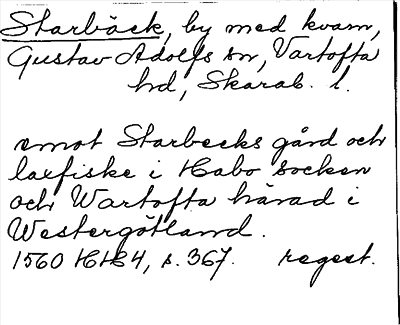 Starbäck, by med kvarn,
Gustav Adolfs sn, Vartofta
hd, Skarab. l.
emot Starbecks gård och
laxfiske i Habo socken
och Wartofta härad i
Westergötland.
1560 HH34, s. 367. regest.